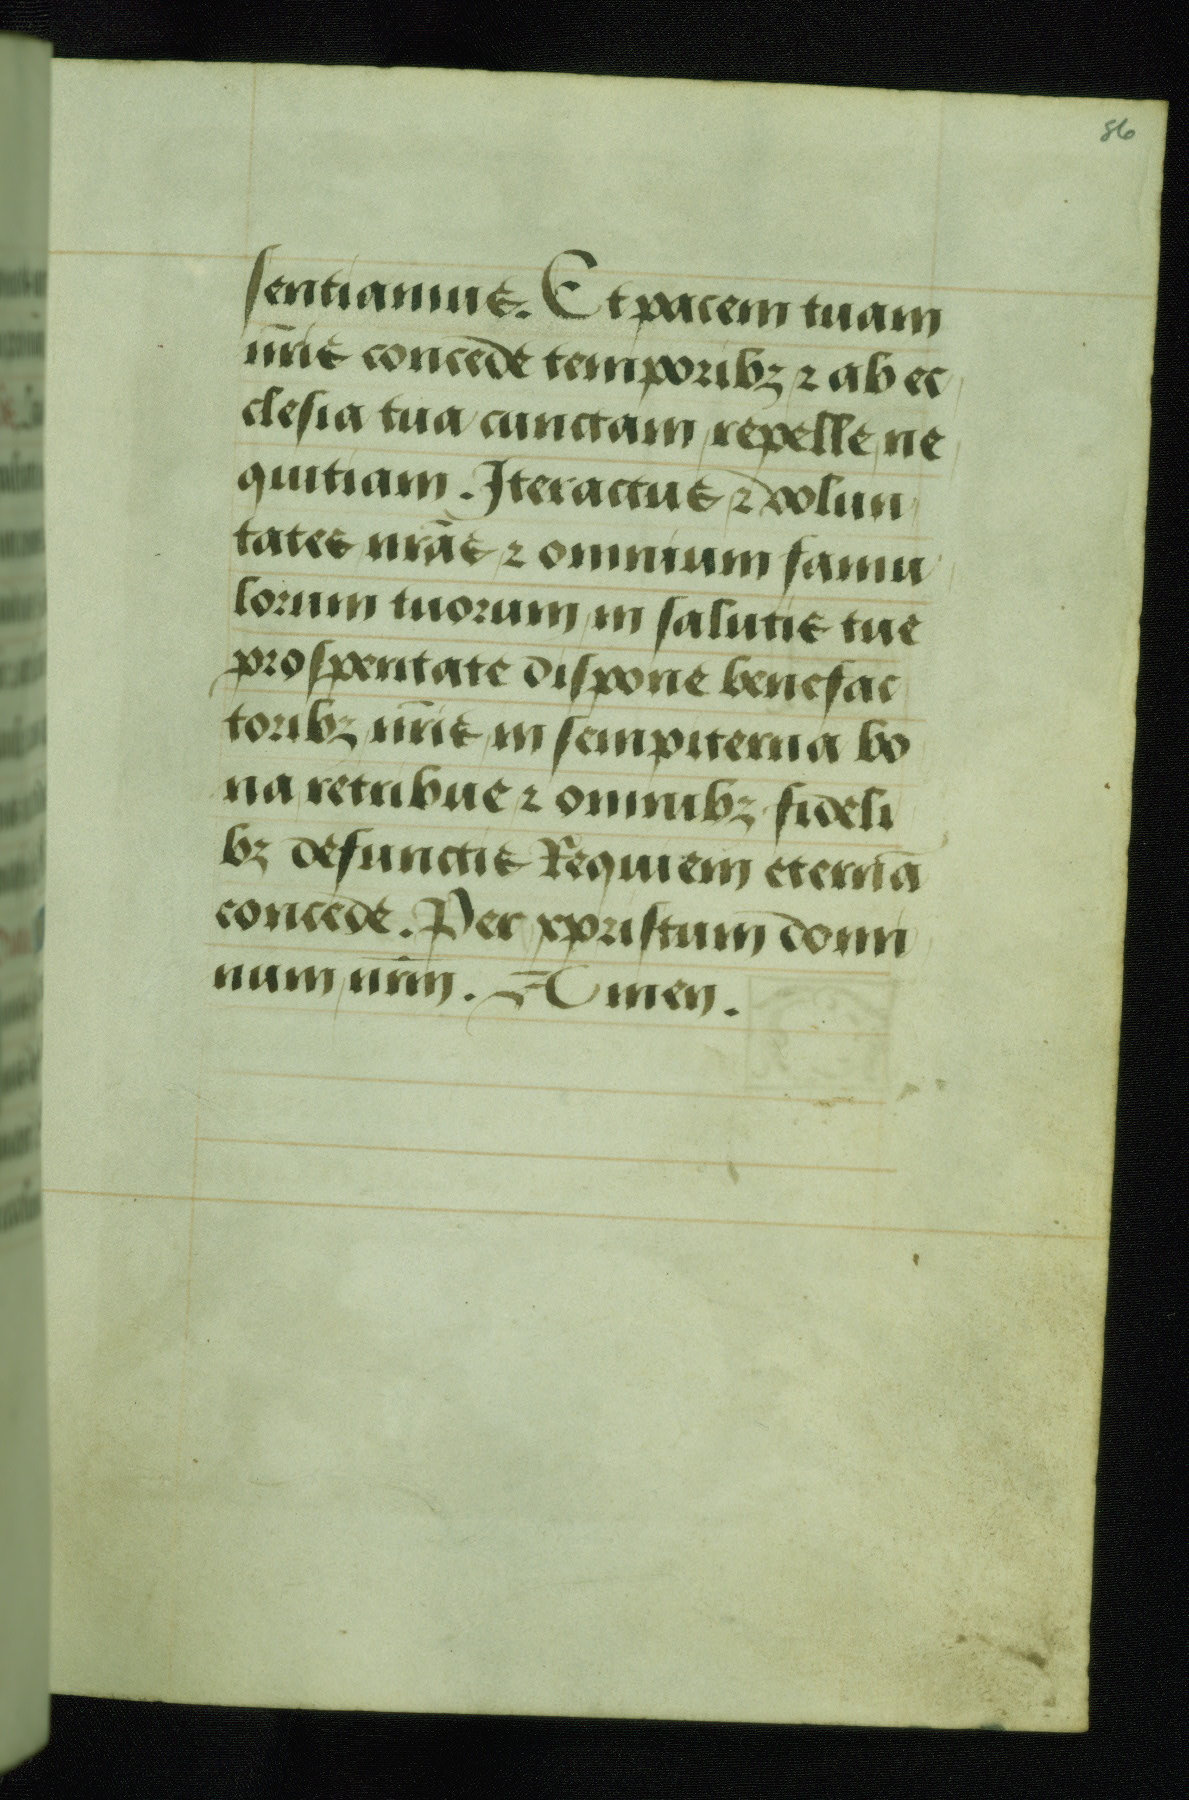 86
sentiamus. Et pacem tuam
nr̄is concede temporibꝫ ⁊ ab ec
clesia tua cunctam repelle ne
quitiam. Iter actus ⁊ volun
tates nrā̄s ⁊ omnium famu
lorum tuorum in salutis tue
prosperitate dispone benefac
toribꝫ nr̄is in sempiterna bo
na retribue ⁊ omnibꝫ fideli
bꝫ defunctis Requiem eternā
concede. Per xpristum domi
num nr̄m. Amen.